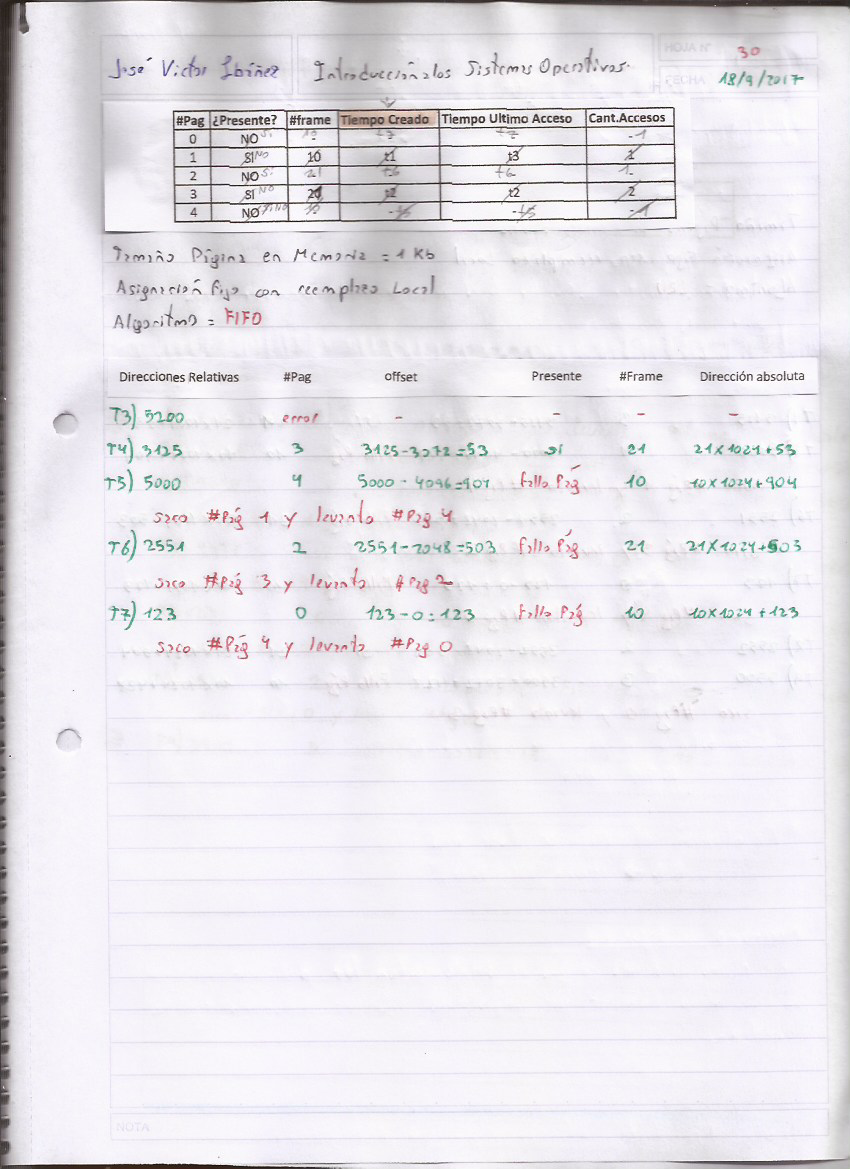 HOJA N° 30
José Victor Ibáñez Introducción a los Sistemas Operativos.
FECHA 18/9/2017
#Pag ¿Presente? #frame Tiempo Creado TIempo Ultimo Acceso Cant.Accesos
0 NO Si t7 t7 -1
1 SI NO 10 t1 t3 1
2 NO Si 21 t6 t6 1
3 SI NO 21 t2 t2 2
4 NO Si NO 10 -t5 -t5 -1
Tamaño Página en Memoria = 1 Kb
Asignación fijo con reemplazo Local
Algoritmo = FIFO
Direcciones Relativas #Pag offset Presente #Frame Dirección absoluta
T3) 5200 error - - - -
T4) 3125 3 3125-3072=53 si 21 21x1024+53
T5) 5000 4 5000-4096=904 fallo Pág 10 10x1024+904
saco #Pág 1 y levanto #Pag 4
T6) 2551 2 2551-2048=503 fallo Pág 21 21x1024+503
saco #Pág 3 y levanto #Pag 2
T7) 123 0 123-0=123 fallo Pág 10 10x1024+123
saco #Pág 4 y levanto #Pag 0
NOTA